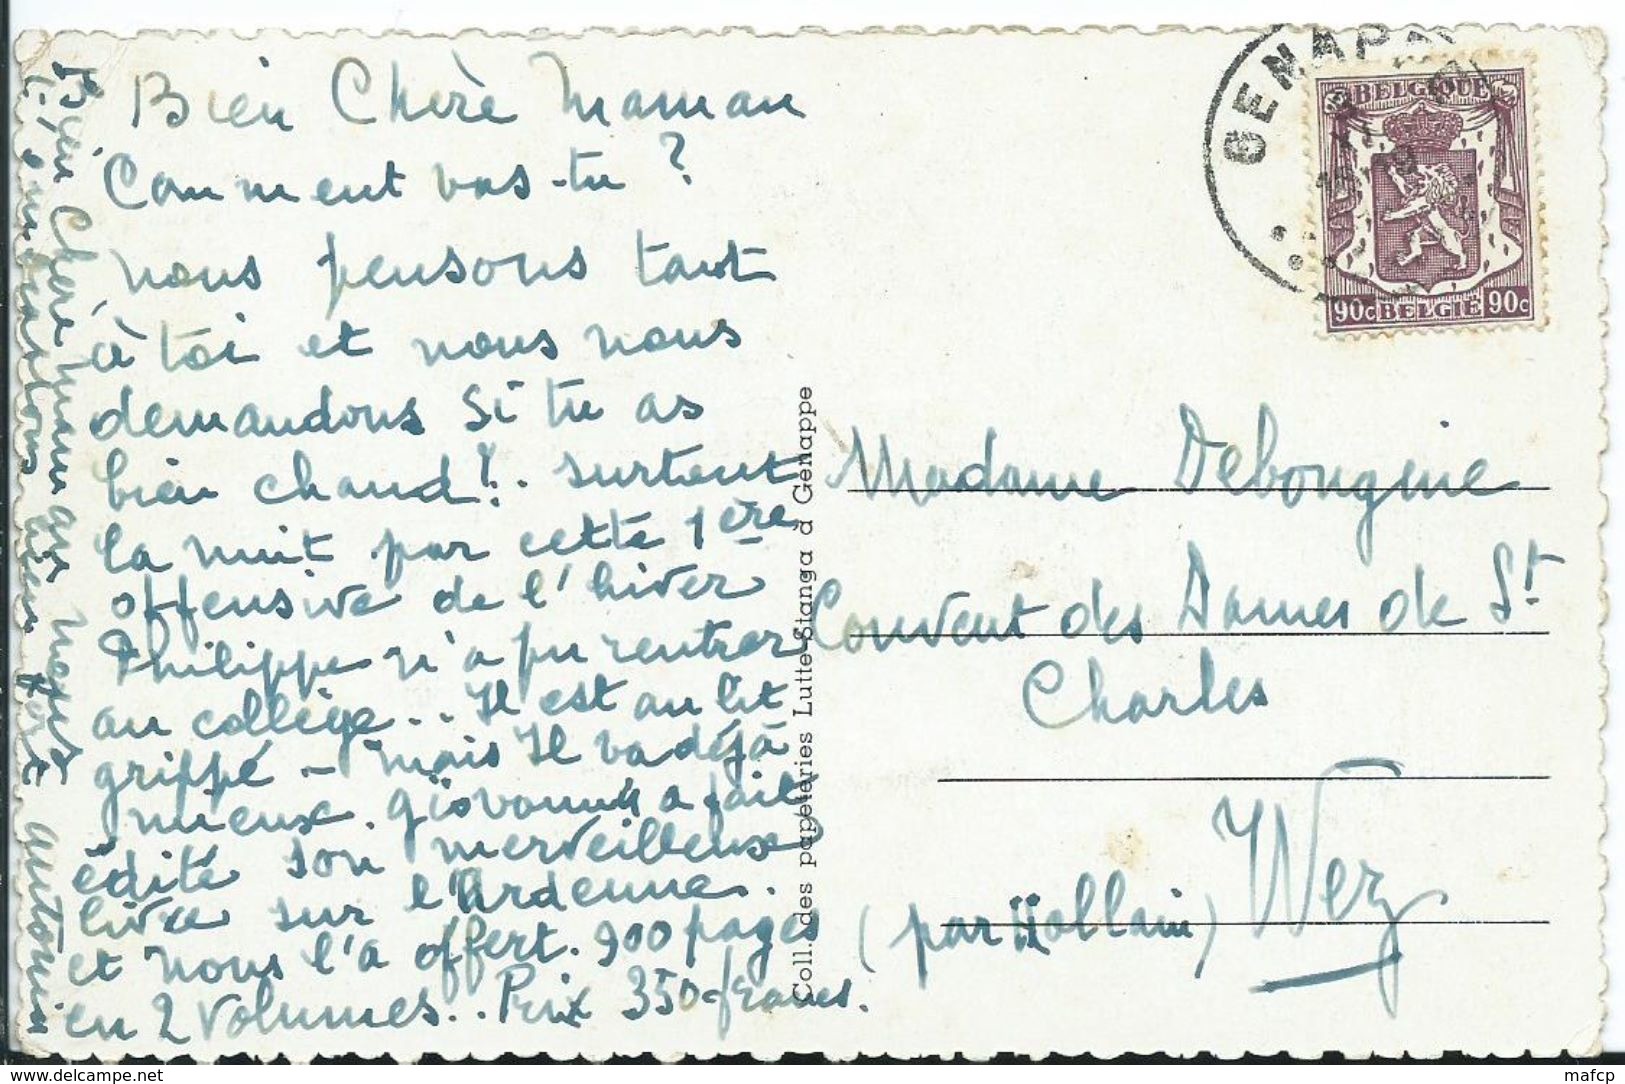 Bien Chère Maman
Comment vas-tu ?
nous pensons tant
à toi et nous nous
demandons si tu as
bien chaud !.. surtout
la nuit par cette 1ère
offensive de l'hiver
Philippe n'a pu rentrer
au collège.. Il est au lit
grippé - mais Il va déjà
mieux. a fait
édité son merveilleux
livre sur l'Ardenne.
et nous l'a offert. 900 pages
en 2 volumes.. Prix 350 francs.
Bien Chère maman nous
t'embrassons bien fort
Coll. des papeteries Lutte-Stanga à Genappe
GENAPPE
BELGIQUE
90c BELGIE 90c
Madame Debongnie
Couvent des Dames de St
Charles
(par Hollain) Wez
delcampe.net
mafcp